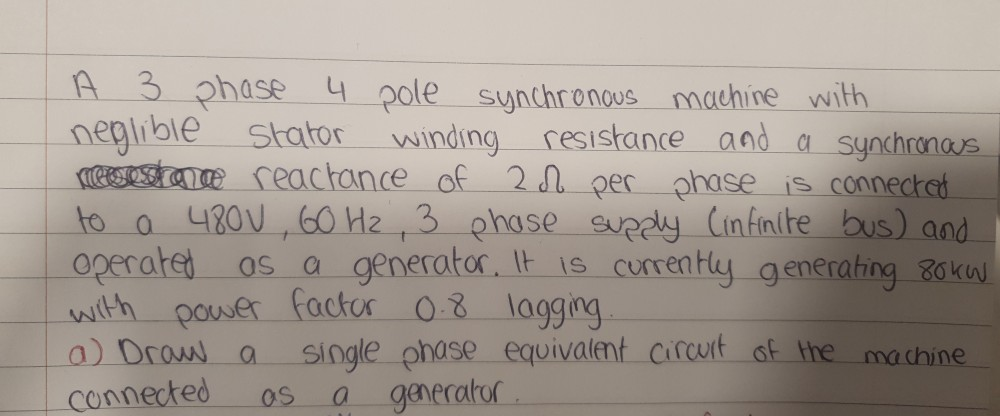 A 3 phase 4 pole synchronous machine with
neglible stator winding resistance and a synchronous
reactance of 2Ω per phase is connected
to a 480V, 60Hz, 3 phase supply (infinite bus) and
operated as a generator. It is currently generating 80kW
with power factor 0.8 lagging.
a) Draw a single phase equivalent circuit of the machine
connected as a generator.